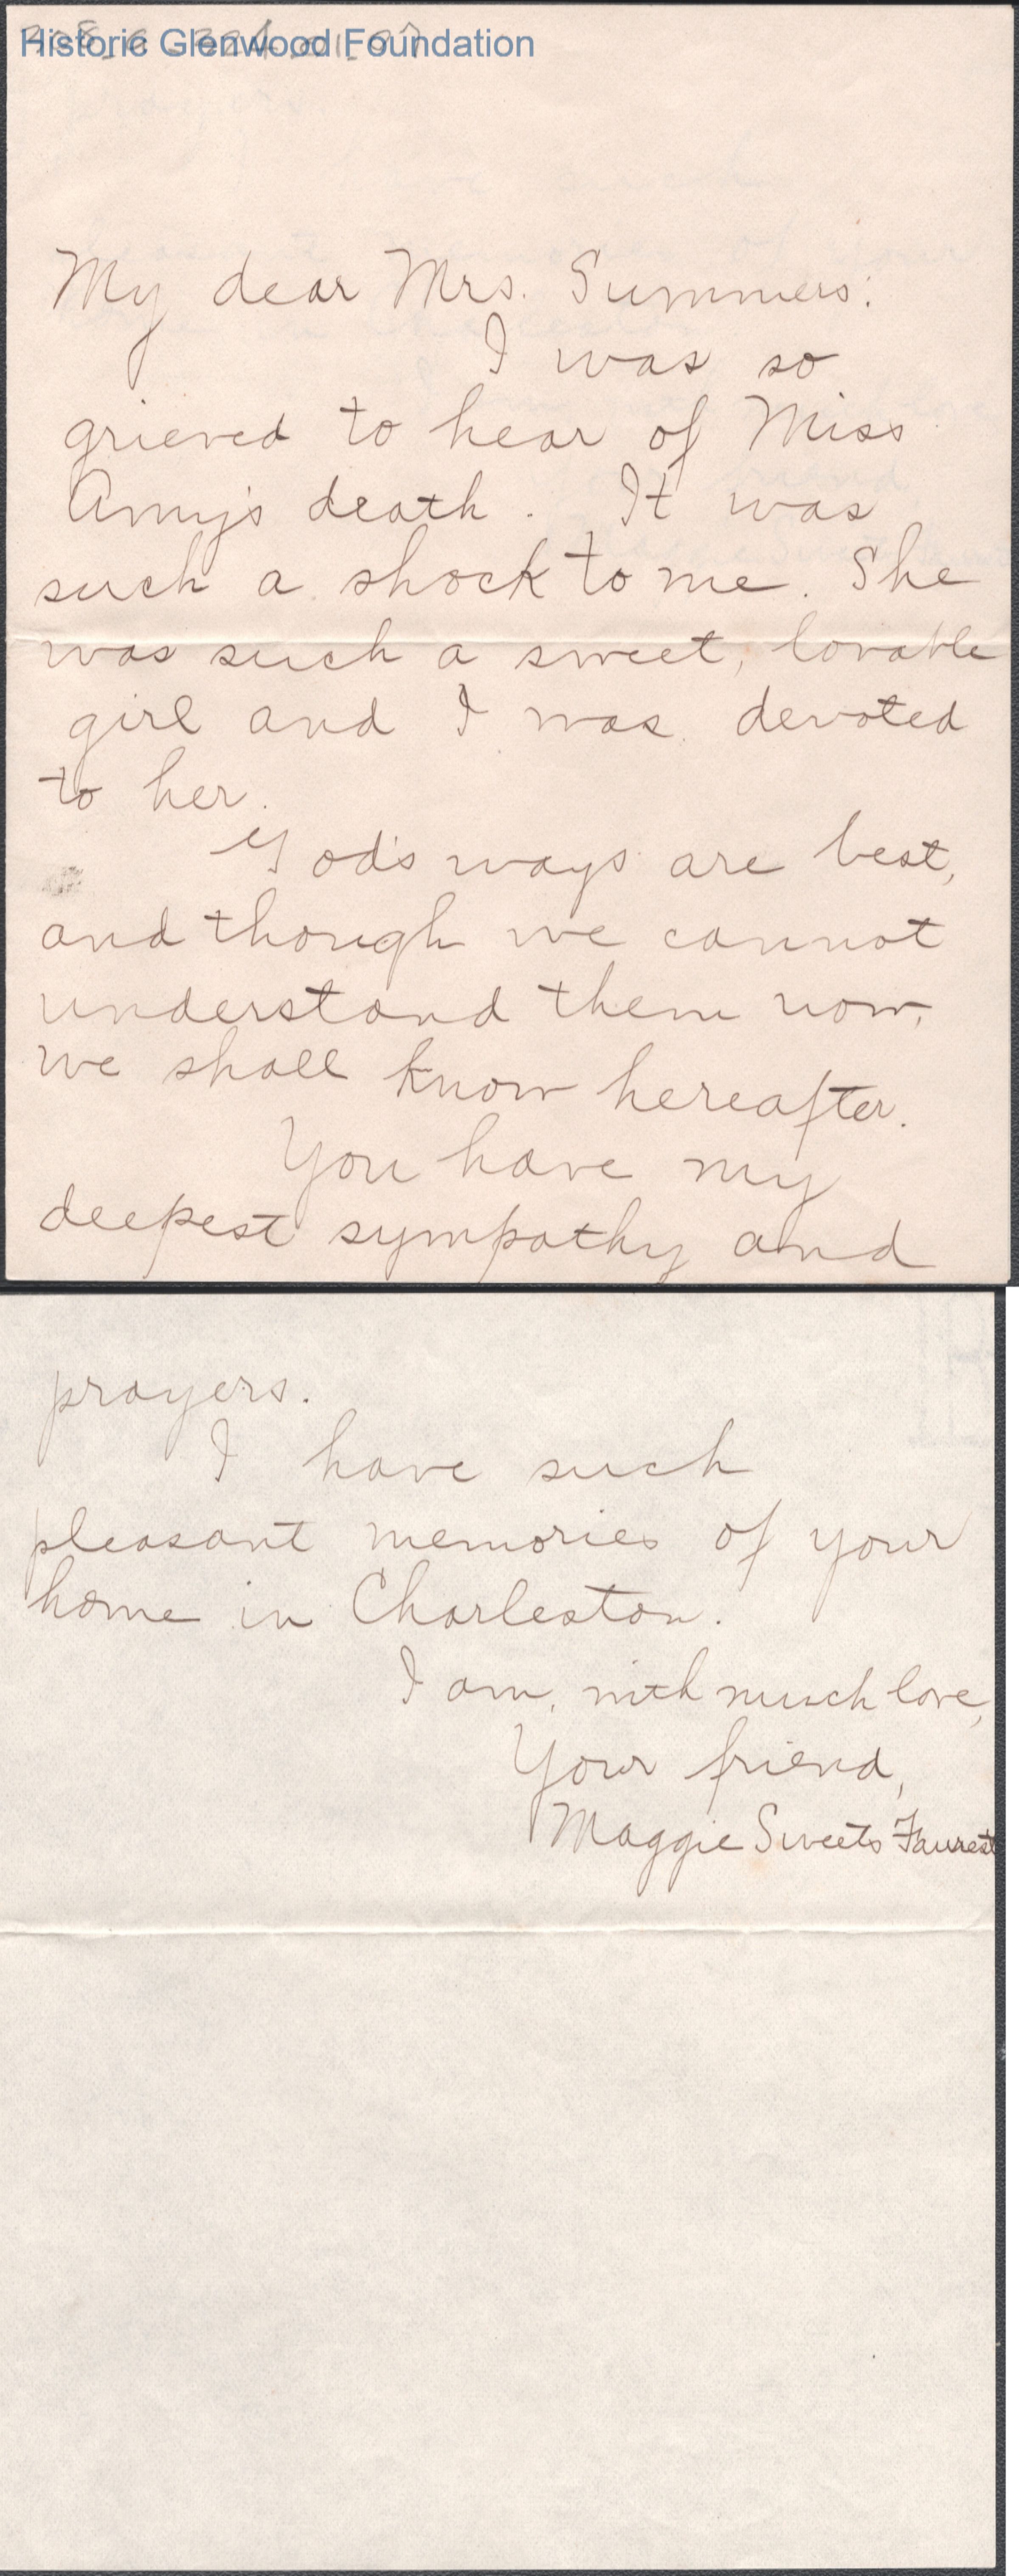 Historic Glenwood Foundation
My dear Mrs. Summers:
I was so
grieved to hear of Miss
Amy's death. It was
such a shock to me. She
was such a sweet, lovable
girl and I was devoted
to her.
God's ways are best,
and though we cannot
understand them now,
we shall know hereafter.
You have my
deepest sympathy and
prayers.
I have such
pleasant memories of your
home in Charleston.
I am, with much love,
Your friend,
Maggie Sweets Faurest